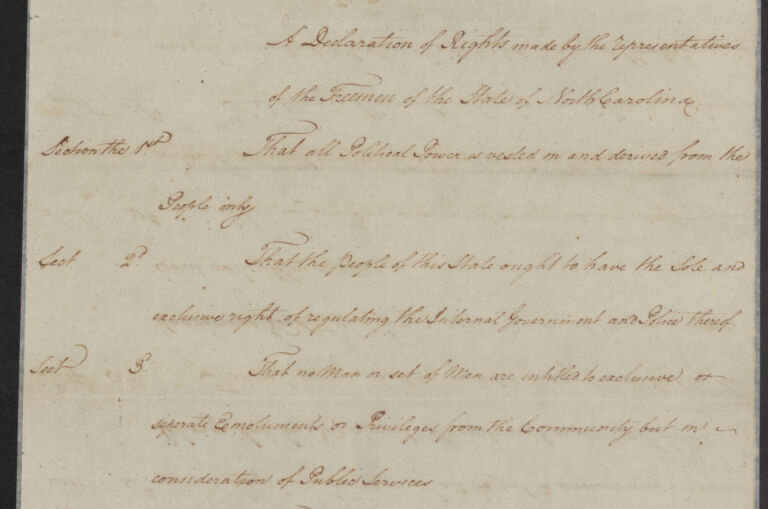 A Declaration of Rights made by the representatives
of the Freemen of the State of North Carolina
Section the 1st. That all Political Power is vested in and derived from the
People only
Sect 2d. That the People of this State ought to have the Sole and
exclusive right of regulating the Internal Government and Police thereof.
Sect 3d. That no Man or set of Men are intitled to exclusive or
seperate Emoluments or Privileges from the Community but in
consideration of Public Services